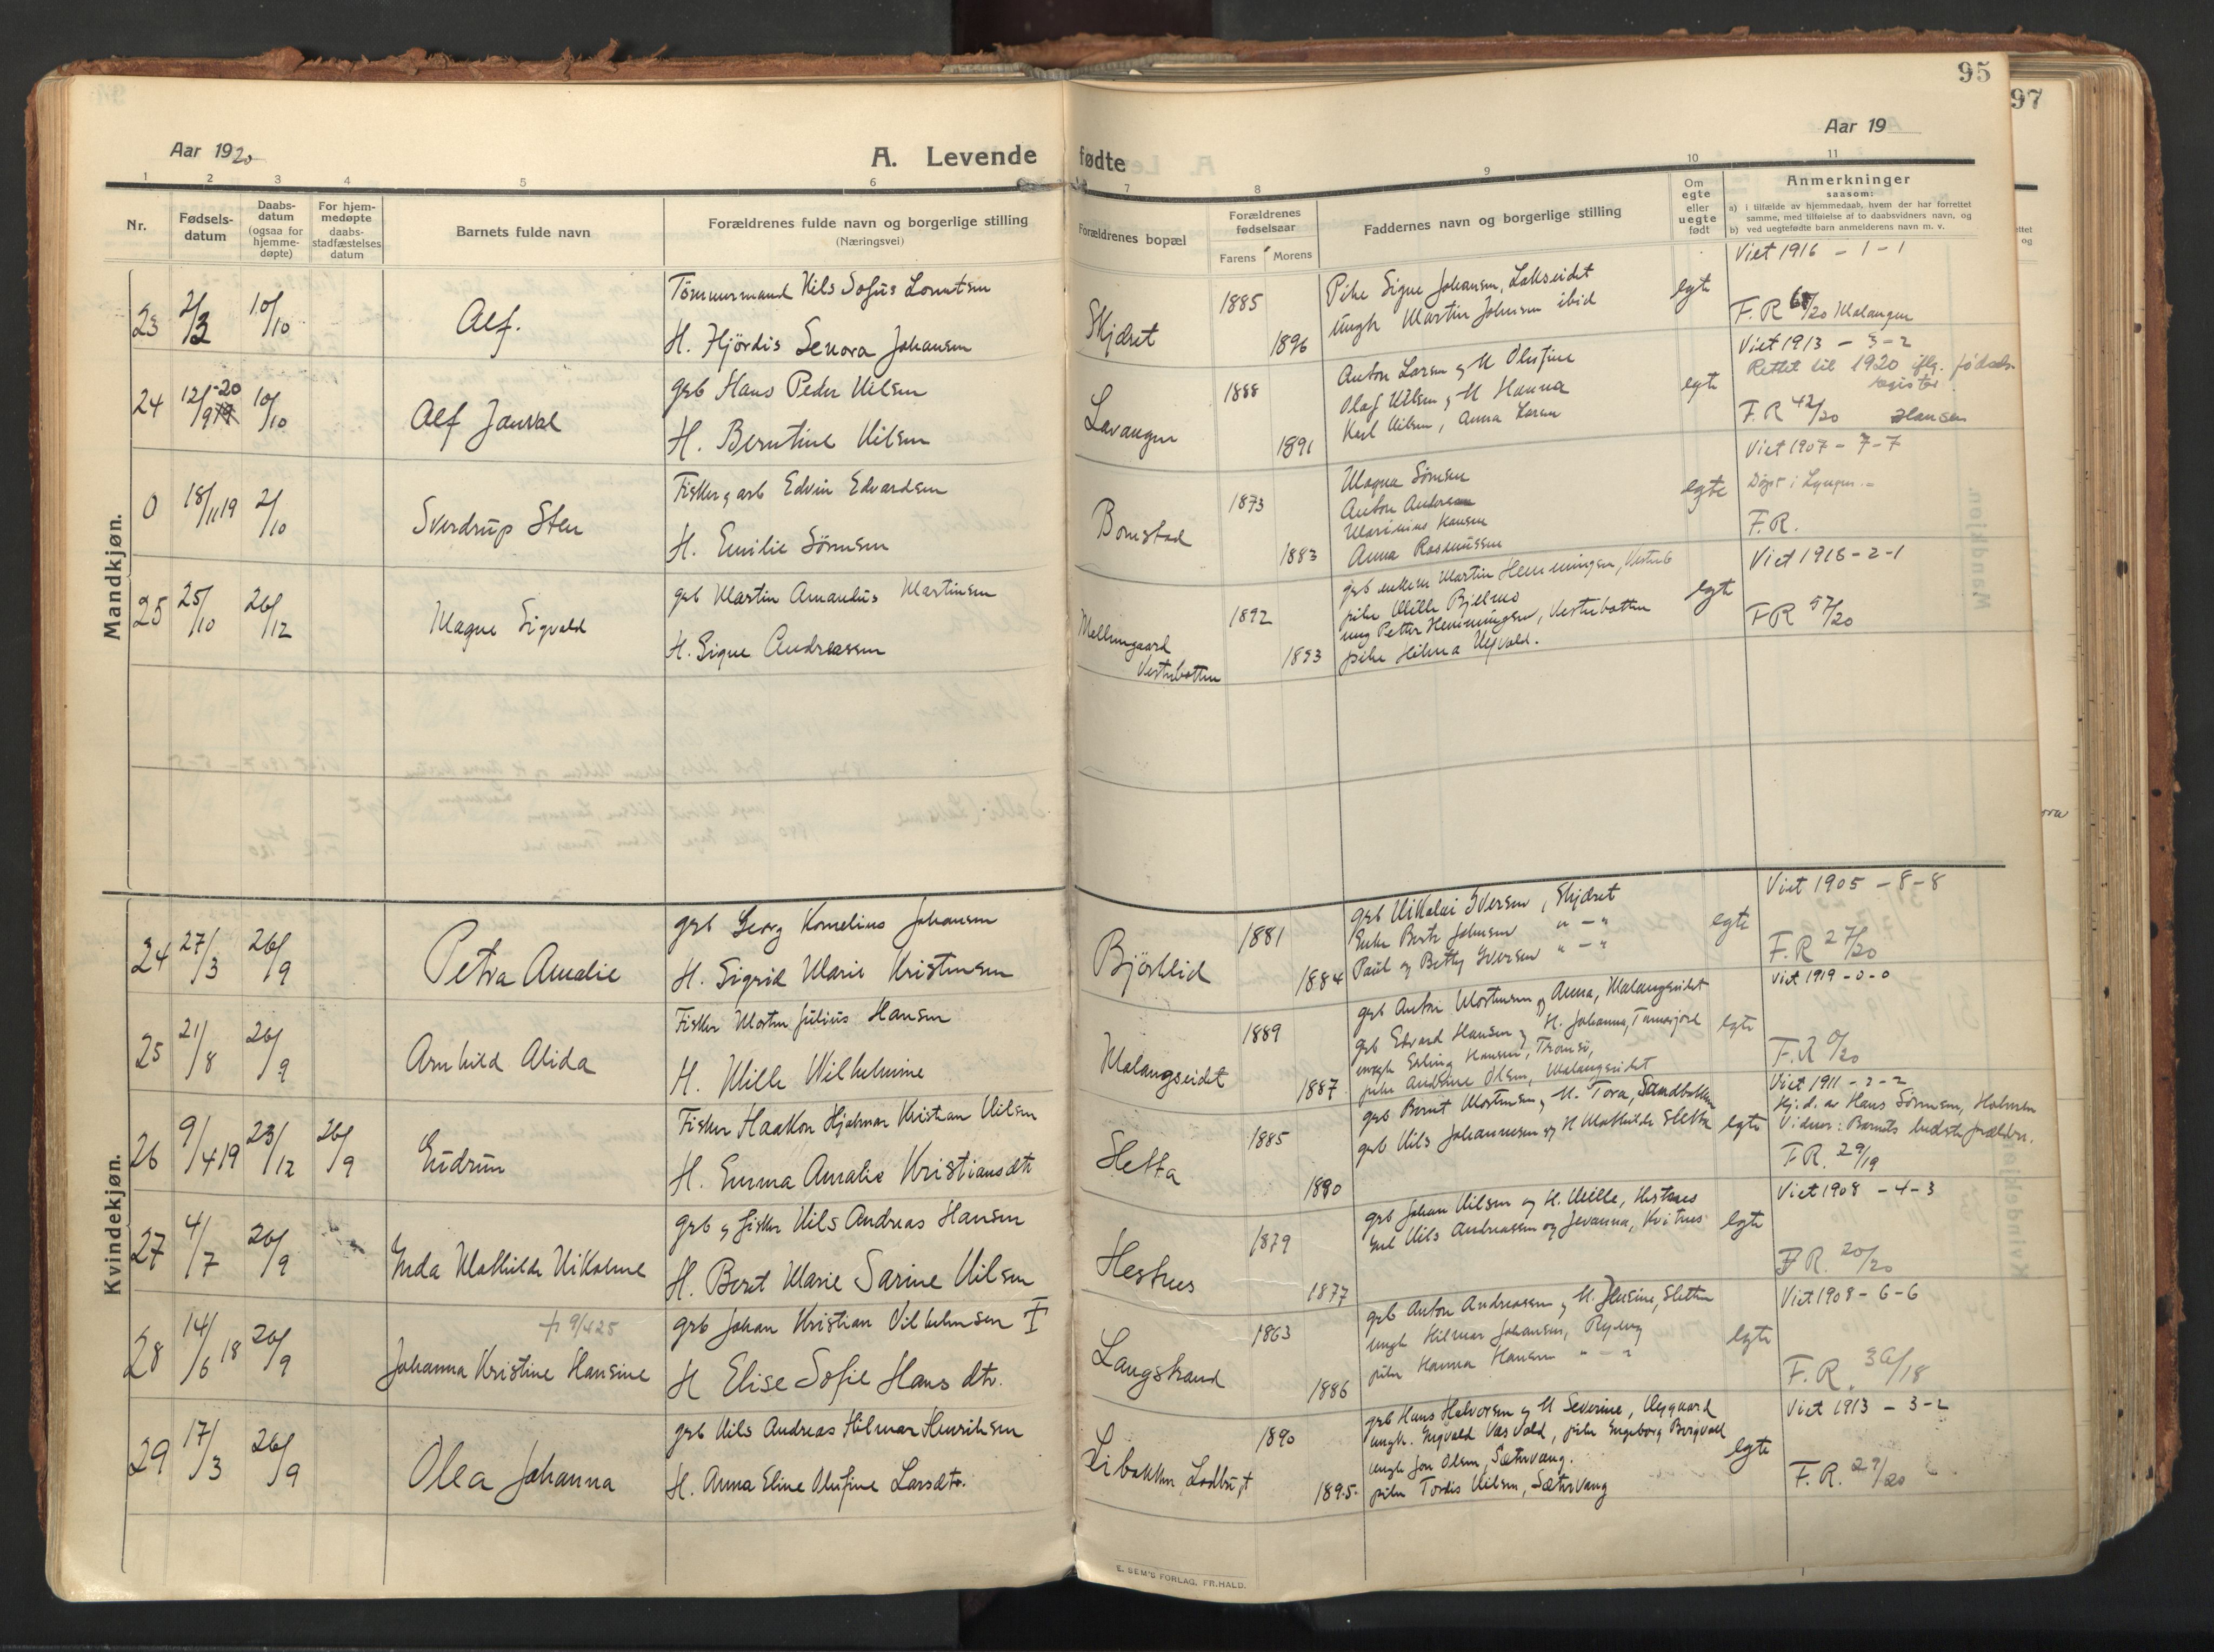 95
97
Aar 1920
A. Levende
fødte
Aar 19
1 2 3 4 5 6 7 8 9 10 11
Nr.
Fødsels-
datum
Daabs-
datum
(ogsaa for
hjemme-
døpte)
For hjem-
medøpte
daabs-
stadfæstelses
datum
Barnets fulde navn
Forældrenes fulde navn og borgerlige stilling
(Næringsvei)
Forældrenes bopæl
Forældrenes
fødselsaar
Farens Morens
Faddernes navn og borgerlige stilling
Om
egte
eller
uegte
født
Anmerkninger
saasom:
a) i tilfælde av hjemmedaab, hvem der har forrettet
samme, med tilføielse af to daabsvidners navn, og
b) ved uegtefødte barn anmelderens navn m. v.
Mandkjøn.
23 2/3 10/10 Alf.
Tømmermand Nils Sofus Lorentsen
H. Hjördis Senora Johansen
Skjæret 1885 1896
Pike Signe Johansen, Lakseidet
Ungk Martin Johnsen ibid
egte
Viet 1916 - 1 - 1
F. R /20 Malangen
24 12/9 19 -20 10/10 Alf Janval
grb Hans Peder Nilsen
H. Berntine Nilsen
Lavangen 1888 1891
Anton Larsen og H Olufine
Olaf Nilsen og H Hanna
Karl Nilsen, Anna Larsen
egte
Viet 1913 - 3 - 2
Rettet til 1920 iflg. fødsels-
register
F. R 42/20 Hansen
0 18/11 19 2/10 Sverdrup Sten
Fisker og arb Edvin Edvardsen
H. Emilie Sørensen
Bomstad 1873 1883
Magna Sørensen
Anton Andersen
Marinius Hansen
Anna Rasmussen
egte
Viet 1907 - 7 - 7
Døpt i Lyngen.
F. R.
25 25/10 26/12 Magne Sigvald
grb Martin Amandus Martinsen
H. Signe Andreassen
Mellemgaard
Vesterbotten
1892 1893
grb enkem Martin Henningsen, Vesterb
pike Mille Bjellmo
ung Petter Henningsen, Vesterbotten
pike Hilma
egte
Viet 1918 - 2 - 1
F R 57/20
Kvindekjøn.
24 27/3 26/9 Petra Amalie
grb Georg Kornelius Johansen
H. Sigrid Marie Kristensen
Bjørklid 1881 1884
grb Nikolai Iversen, Skjæret
Enke Berte Johnsen " - "
Paul og Betty Iversen " - "
egte
Viet 1905 - 8 - 8
F. R 27/20
25 21/8 26/9 Arnhild Alida
Fisker Morten Julius Hansen
H. Mille Wilhelmine
Malangseidet 1889 1887
grb Anton Mortensen og Anna, Malangseidet
grb Edvard Hansen og H. Johanna, Tennesfjord
ungk Erling Hansen, Tromsø,
pike Andrine Olsen, Malangseidet
egte
Viet 1919 - 0 - 0
F. R 0/20
26 9/4 19 23/12 26/9 Gudrun
Fisker Haakon Hjalmar Kristian Nilsen
H. Emma Amalie Kristiansdtr
Sletta 1885 1890
grb Bernt Mortensen og H. Tora, Sandbakken
grb Nils Johannesen og H Mathilde Sletta
egte
Viet 1911 - 2 - 2
Hj. d. av Hans Sørensen, Holmen
Vidner: Barnets bedsteforældre.
F R. 29/19
27 4/7 26/9 Inda Mathilde Nikoline
grb og fisker Nils Andreas Hansen
H. Beret Marie Sarine Nilsen
Hestnes 1879 1877
grb Johan Nilsen og H. Mille, Hestnes
grb Nils Andreassen og Jevanna, Kvitnes
egte
Viet 1908 - 4 - 3
F R. 20/20
28 14/6 18 26/9 Johanna Kristine Hansine
+ 9/4 25
grb Johan Kristian Vilhelmsen I
H Elise Sofie Hans dtr.
Langstrand 1863 1886
grb Anton Andreassen og H. Jensine, Sletten
ungk Hilmar Johansen, Ryøen
pike Hanna Hansen " - "
egte
Viet 1908 - 6 - 6
F. R. 36/18
29 17/3 26/9 Olea Johanna
grb Nils Andreas Hilmar Henriksen
H. Anna Eline Olufine Larsdtr.
Libakken, Ladbugt 1890 1895
grb Hans Halvorsen og H Severine, Nygaard
ungk. Ingvald Vasvold, pike Engeborg Bergvoll
ungk Jon Olsen, Sætervang.
pike Tordis Nilsen, Sætervang
egte
Viet 1913 - 3 - 2
F. R. 29/20
E. SEM'S FORLAG, FR.HALD.